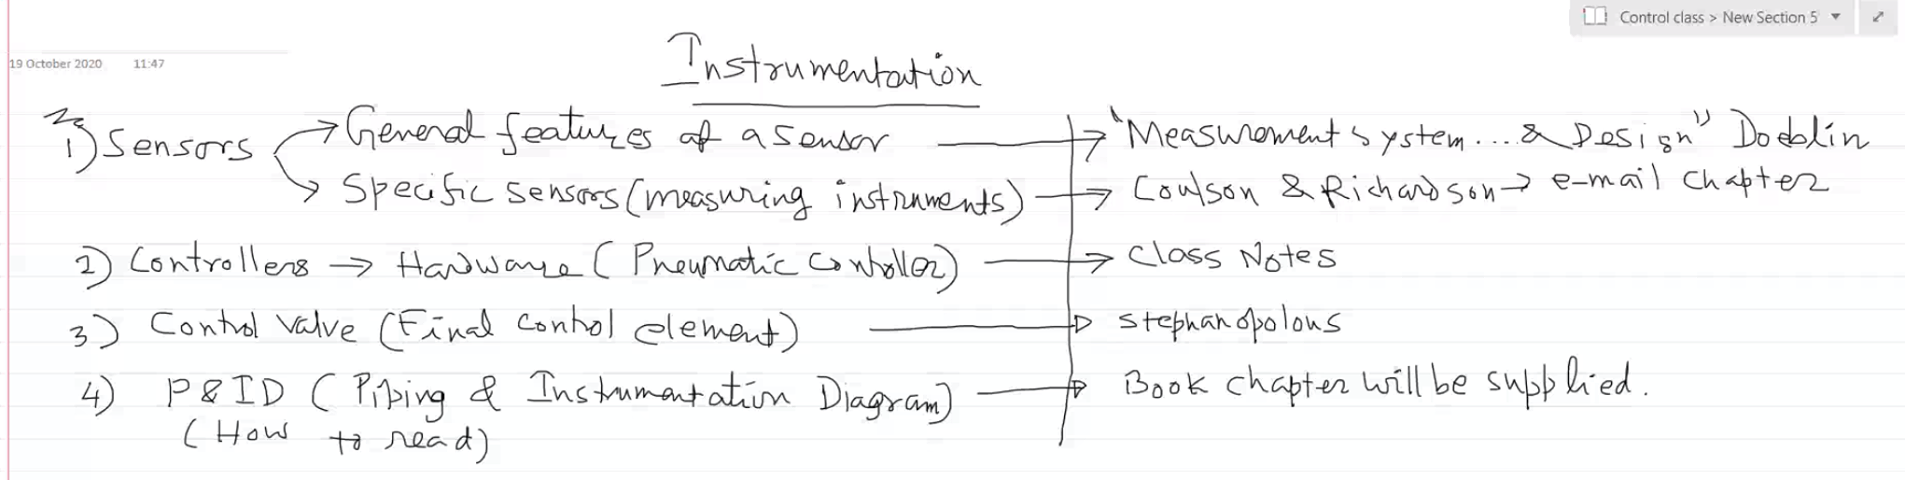 Control class > New Section 5
19 October 2020 11:47
Instrumentation
1) Sensors → General features of a sensor → "Measurement system....& Design" Doeblin
→ Specific sensors (measuring instruments) → Coulson & Richardson → e-mail chapter
2) Controllers → Hardware (Pneumatic Controller) → Class Notes
3) Control valve (Final control element) → stephanopolous
4) P & ID (Piping & Instrumentation Diagram) → Book chapter will be supplied.
(How to read)